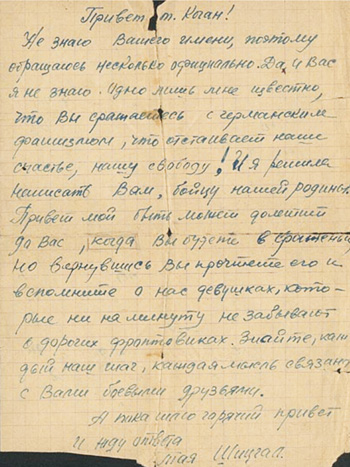 Привет т. Коган!
Не знаю Вашего имени, поэтому
обращаюсь несколько официально. Да и Вас
я не знаю. Одно лишь мне известно,
что Вы сражаетесь с германским
фашизмом, что отстаиваете наше
счастье, нашу свободу! И я решила
написать Вам, бойцу нашей родины.
Привет мой быть может долетит
до Вас, когда Вы будете в сражении,
но вернувшись Вы прочтете его и
вспомните о нас девушках, кото-
рые ни на минуту не забывают
о дорогих фронтовиках. Знайте, каж-
дый наш шаг, каждая мысль связана
с Вами боевыми друзьями.
А пока шлю горячий привет
и жду ответа
Мая